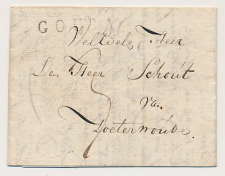 GO
Weledele Heer
De Heer Schout
van
Zoeterwoude.